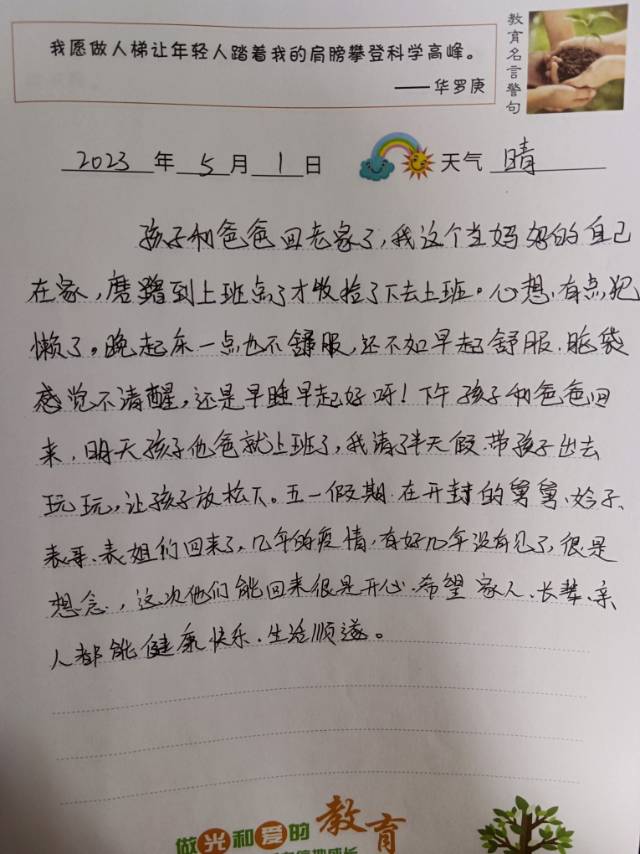 我愿做人梯让年轻人踏着我的肩膀攀登科学高峰。
——华罗庚
教育名言警句
2023年5月1日
天气 晴
孩子和爸爸回老家了,我这个当妈妈的自己
在家,磨蹭到上班点了才收拾了下去上班。心想,有点犯
懒了。晚起床一点也不舒服,还不如早起舒服,脑袋
感觉不清醒,还是早睡早起好呀!下午孩子和爸爸回
来,明天孩子他爸就上班了,我请了半天假,带孩子出去
玩玩,让孩子放松下。五一假期,在开封的舅舅、妗子、
表哥、表姐们回来了,几年的疫情,有好几年没有见了,很是
想念,这次他们能回来很是开心,希望家人、长辈、亲
人都能健康快乐,生活顺遂。
做光和爱的教育